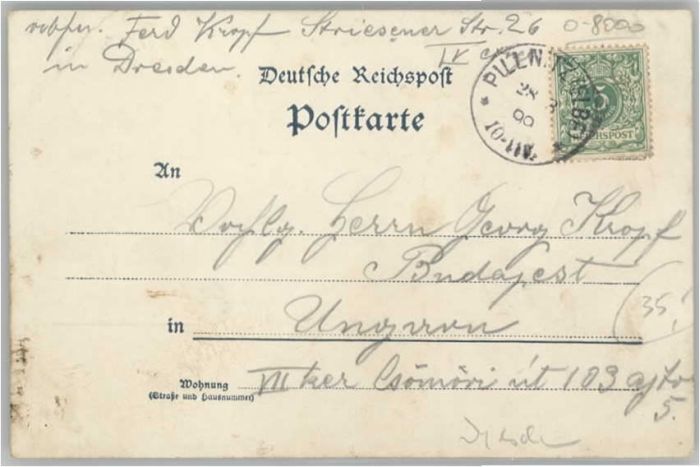 Ferd Kropf Striesener Str. 26
in Dresden.
IV
0-8000
Deutsche Reichspost
Postkarte
PILLNITZ (ELBE)
10-11V
REICHSPOST
An
Wohlg. Herrn Georg Kropf
Budapest
in Ungarn
35.
Wohnung
(Straße und Hausnummer)
VII ker Csömöri út 103 ajto
5.
Dresden